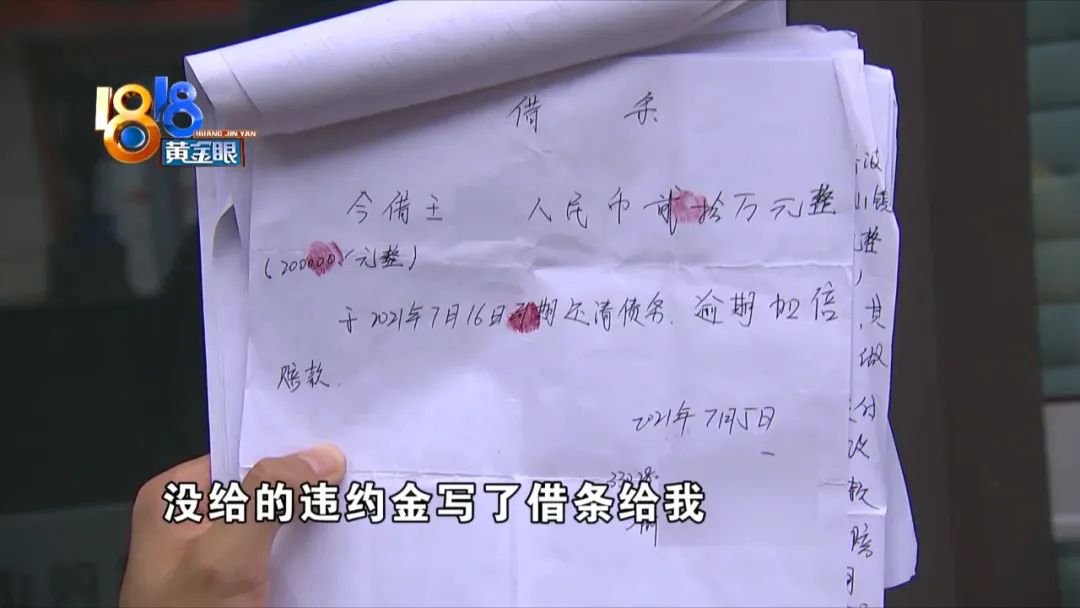 1818
HUANG JIN YAN
黄金眼
借 条
今借王 人民币贰拾万元整
(200000/元整)
于2021年7月16日到期还清债务.逾期加倍
赔款.
2021年7月5日
没给的违约金写了借条给我
波
钱
整
)
其
做
付
款
赔